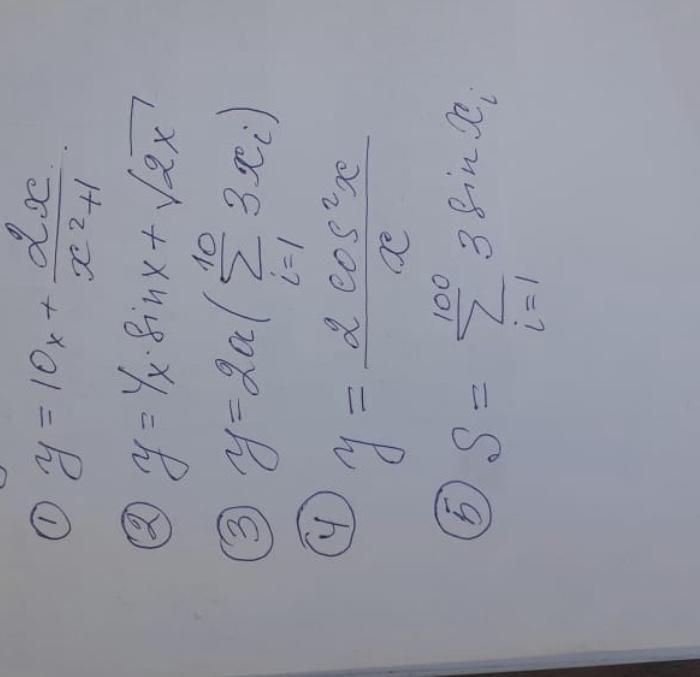 ① y = 10x + 2x / x²+1
② y = 4x · sin x + √2x
③ y = 2a ( ∑ 10 i=1 3x i )
④ y = 2 cos² x / x
⑤ S = ∑ 100 i=1 3 sin x i